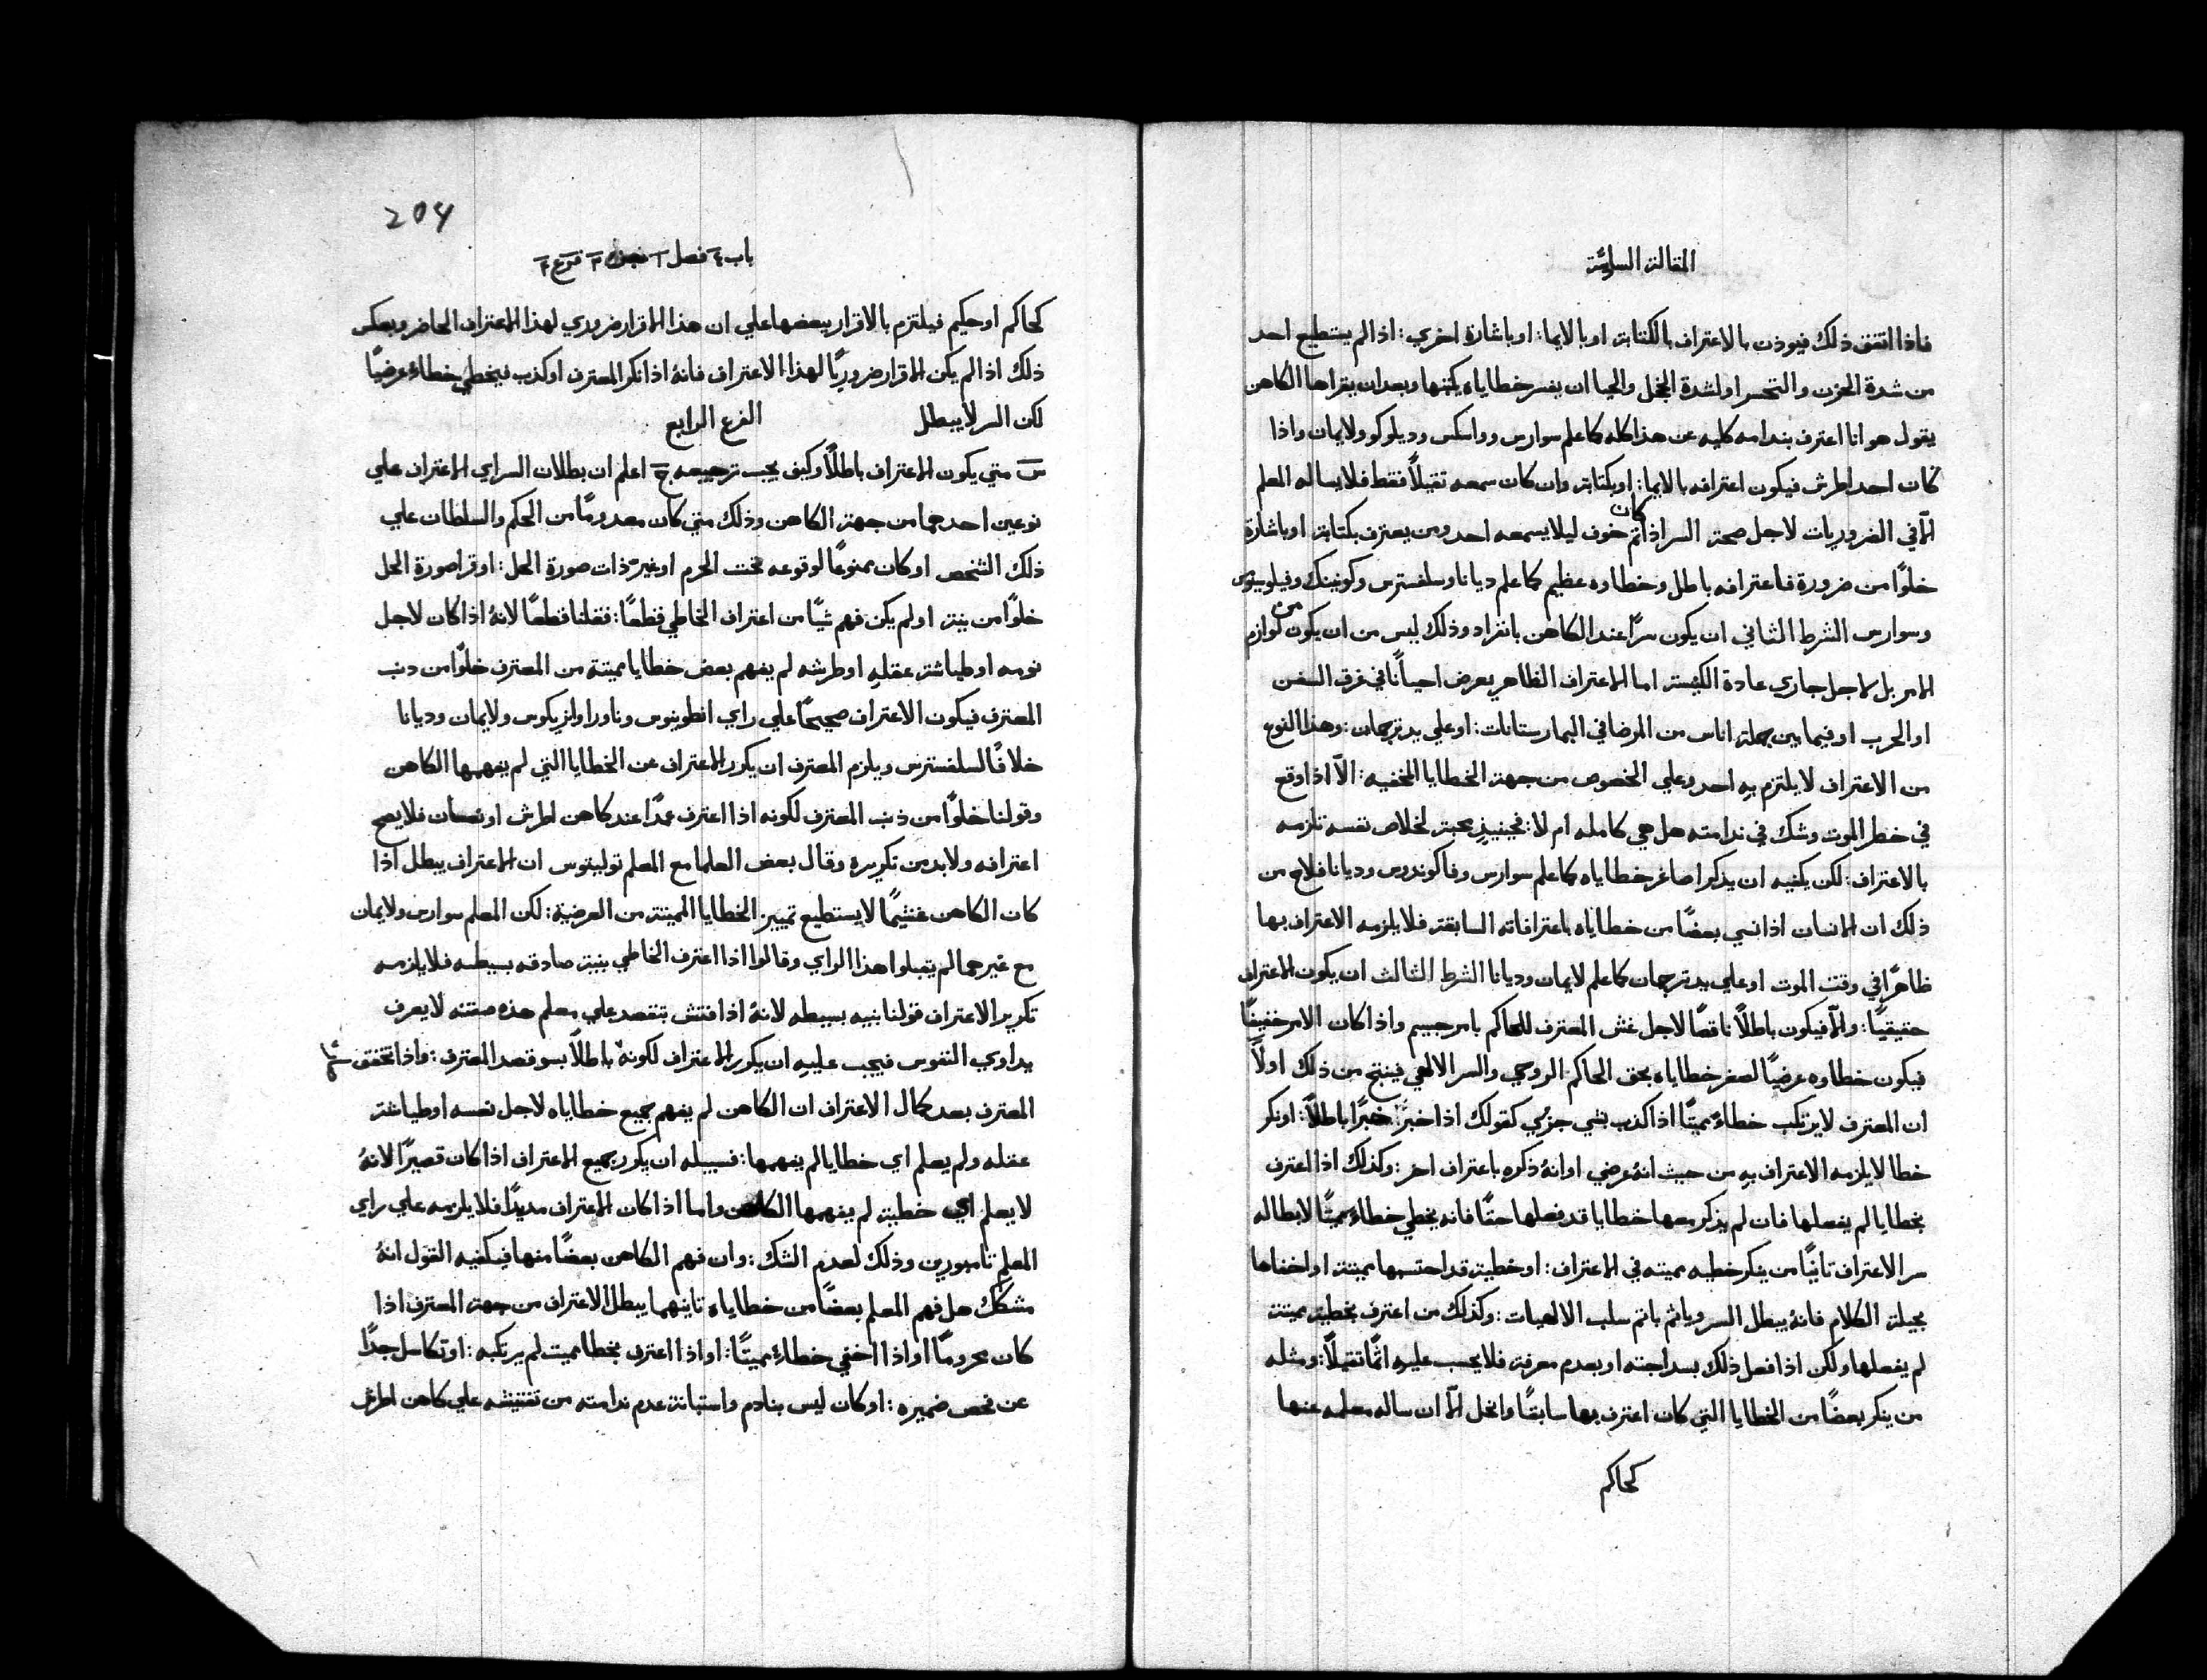 المقالة السادسة
فاذا اتفق ذلك فيوذن بالاعتراف بالكتابة او بالايما: او باشارة اخري: اذا لم يستطيع احد
من شدة الحزن والتحسر او لشدة الخجل والحيا ان يفسر خطاياه يكتبها وبعد ان يقراها الكاهن
يقول هو انا اعترف بندامه كليه عن هذا كله كما علم سوارس وواسكس وديلوكو ولايمان واذا
كان احد اطرش فيكون اعترافه بالايما: او بكتابة وان كان سمعه ثقيلاً فقط فلا يساله المعلم
الاّ في الضروريات لاجل صحة السر اذا كان ثم خوف ليلا يسمعه احد ومن يعترف بكتابة او باشارة
خلوًا من ضرورة فاعترافه باطل وخطاوه عظيم كما علم ديانا وسلفسترس وكونينك وفيلوسيوس
وسوارس الشرط الثاني ان يكون سرًا عند الكاهن بانفراد وذلك ليس من ان يكون من لوازم
الامر بل لاجل جاري عادة الكنيسة اما الاعتراف الظاهر يعرض احيانًا في غرق السفن
او الحرب او فيما بين جملة اناس من المرضا في البيمارستانات: او علي يد ترجمان: وهذا النوع
من الاعتراف لا يلتزم بهِ احد وعلي الخصوص من جهة الخطايا المخفيه: الاّ اذا وقع
في خطر الموت وشك في ندامته هل هي كامله ام لا: فحينيذٍ محبة لخلاص نفسه تلزمه
بالاعتراف: لكن يكفيه ان يذكر اصاغر خطاياه كما علم سوارس وفاكوندوس وديانا فلاح من
ذلك ان الانسان اذا نسي بعضًا من خطاياه باعترافاته السابقة فلا يلزمه الاعتراف بها
ظاهرًا في وقت الموت او علي يد ترجمان كما علم لايمان وديانا الشرط الثالث ان يكون الاعتراف
حقيقيًا: والاّ فيكون باطلاً ناقصًا لاجل غش المعترف للحاكم بامر جسيم واذا كان الامر خفيفًا
فيكون خطاوه عرضيًا لصغر خطاياه بحق الحاكم الروحي والسر الالهي فينتج من ذلك اولاً
ان المعترف لا يرتكب خطاءً مميتًا اذا كذب بشي جزئي كقولك اذا خبرَّ خبرًا باطلاً: او نكر
خطا لا يلزمه الاعتراف بهِ من حيث انهُ عرضي او انهُ ذكره باعتراف اخر: وكذلك اذا اعترف
بخطايا لم يفعلها فان لم يذكر معها خطايا قد فعلها حقًا فانه يخطي خطاءً مميتًا لابطاله
سر الاعتراف ثانيًا من ينكر خطيه مميته في الاعتراف: او خطية قد احتسبها مميتة او اخفاها
بحيلة الكلام فانهُ يبطل السر وياثم باثم سلب الالهيات: وكذلك من اعترف بخطية مميتة
لم يفعلها ولكن اذا فعل ذلك بسداجته او بعدم معرفة فلا يحسب عليهِ اثمًا ثقيلاً: ومثله
من ينكر بعضًا من الخطايا التي كان اعترف بها سابقًا وانحل الاّ ان ساله معلمه عنها
كحاكم
204
باب ٤ فصل ١ ٣ فرع ٤
كحاكم او حكيم فيلتزم بالاقرار ببعضها علي ان هذا الاقرار ضروري لهذا الاعتراف الحاضر وبعكس
ذلك اذا لم يكن الاقرار ضروريًا لهذا الاعتراف فانهُ اذا انكر المعترف او كذب فيخطي خطاءً عرضيًا
لكن السر لا يبطل الفرع الرابع
س متي يكون الاعتراف باطلاً وكيف يجب ترجيعه ج اعلم ان بطلان السر اي الاعتراف علي
نوعين احدهما من جهة الكاهن وذلك متي كان معدومًا من الحكم والسلطان علي
ذلك الشخص او كان ممنوعًا لوقوعه تحت الحرم او غيرَّ ذات صورة الحل: او قرا صورة الحل
خلوًا من نية او لم يكن فهم شيًا من اعتراف الخاطي قطعًا: فقلنا قطعًا لانهُ اذا كان لاجل
نومه او طياشة عقلهِ او طرشه لم يفهم بعض خطايا مميتة من المعترف خلوًا من ذنب
المعترف فيكون الاعتراف صحيحًا علي راي انطوينوس وناورا وانريكوس ولايمان وديانا
خلافًا لسلفسترس ويلزم المعترف ان يكرر الاعتراف عن الخطايا التي لم يفهمها الكاهن
وقولنا خلوًا من ذنب المعترف لكونه اذا اعترف عمدًا عند كاهن اطرش او نعسان فلا يصح
اعترافه ولا بد من تكريره وقال بعض العلما مع المعلم توليتوس ان الاعتراف يبطل اذا
كان الكاهن غشيمًا لا يستطيع تمييز الخطايا المميتة من العرضية: لكن المعلم سوارس ولايمان
مع غيرهما لم يقبلوا هذا الراي وقالوا اذا اعترف الخاطي بنية صادقه بسيطه فلا يلزمه
تكرير الاعتراف قولنا بنيه بسيطه لانهُ اذا فتش بتقصد علي معلم هذه صفته لا يعرف
يداوي النفوس فيجب عليهِ ان يكرر الاعتراف لكونهُ باطلاً بسو قصد المعترف: واذا تحقق
المعترف بعد كمال الاعتراف ان الكاهن لم يفهم جميع خطاياه لاجل نعسه او طياشة
عقله ولم يعلم اي خطايا لم يفهمها: فسبيله ان يكرر جميع الاعتراف اذا كان قصيرًا لانهُ
لا يعلم اي خطية لم يفهمها الكاهن واما اذا كان الاعتراف مديدًا فلا يلزمه علي راي
المعلم تامبورين وذلك لعدم الشك: وان فهم الكاهن بعضًا منها فيكفيه القول انهُ
مشكك هل فهم المعلم بعضًا من خطاياه ثانيهما يبطل الاعتراف من جهة المعترف اذا
كان محرومًا او اذا اخفي خطاءً مميتًا: او اذا اعترف بخطا مميت لم يرتكبه: او تكاسل جدًا
عن فحص ضميره: او كان ليس بنادم واستبانة عدم ندامته من تفتيشه علي كاهن اطرش